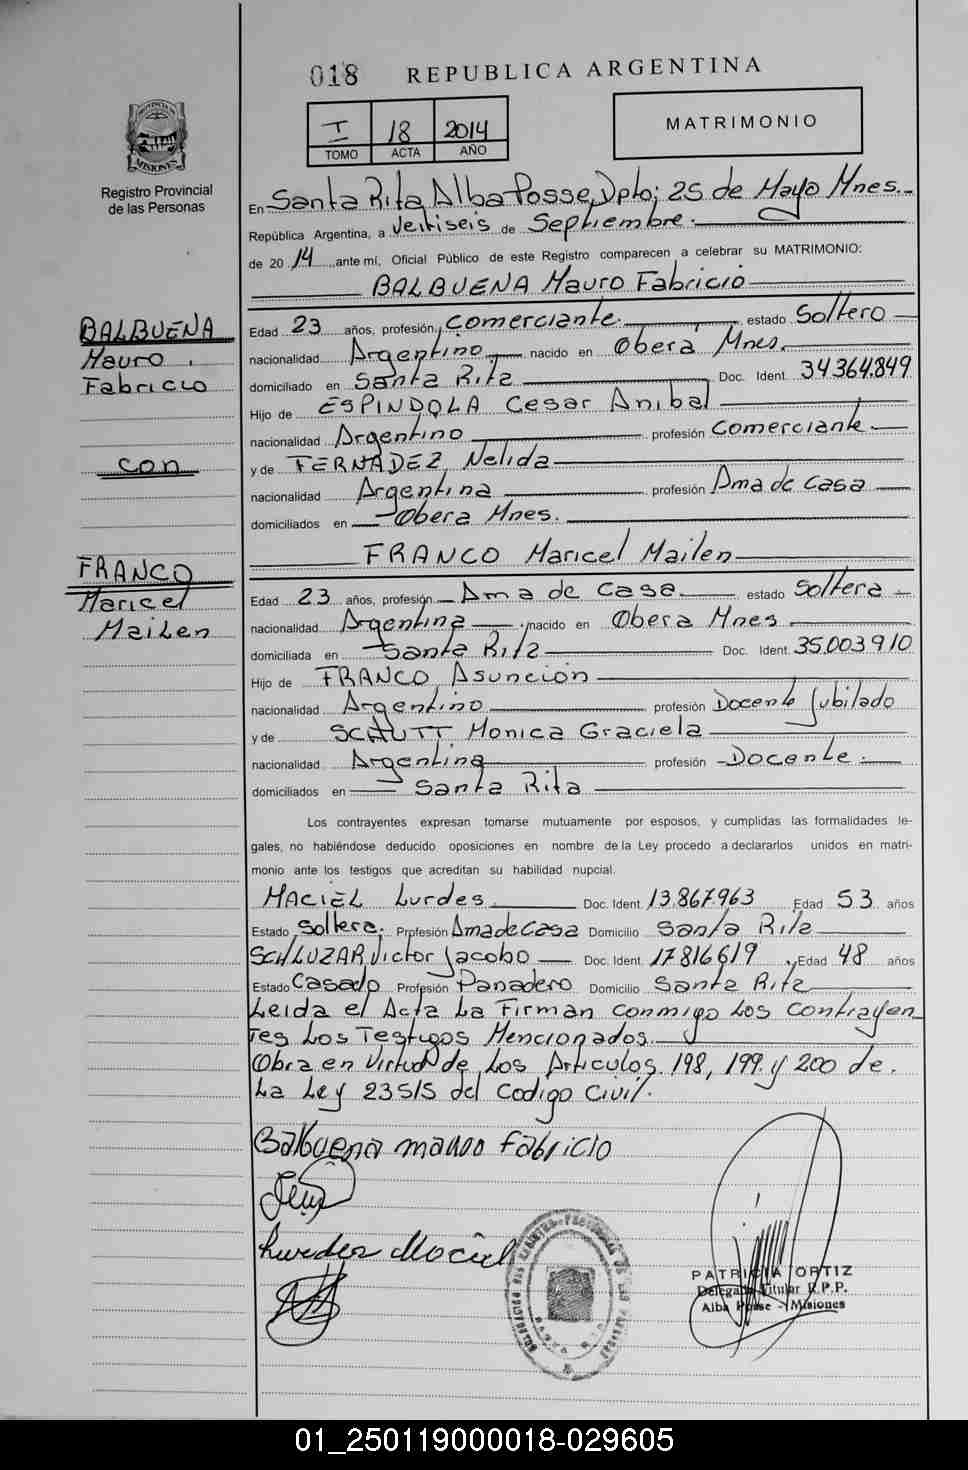 018 REPUBLICA ARGENTINA
I 18 2014
TOMO ACTA AÑO
MATRIMONIO
PROVINCIA DE MISIONES
Registro Provincial
de las Personas
En Santa Rita Alba Posse, Dpto; 25 de Mayo Mnes.
República Argentina, a Veitiseis de Septiembre.
de 2014, ante mí, Oficial Público de este Registro comparecen a celebrar su MATRIMONIO:
BALBUENA Mauro Fabricio
BALBUENA
Mauro
Fabricio
con
FRANCO
Maricel
Mailen
Edad 23 años, profesión, Comerciante. estado Soltero
nacionalidad Argentino nacido en Oberá Mnes.
domiciliado en Santa Rita Doc. Ident. 34364.849
Hijo de ESPINDOLA Cesar Anibal
nacionalidad Argentino profesión Comerciante
y de FERNADEZ, Nelida
nacionalidad Argentina profesión Ama de Casa
domiciliados en Obera Mnes.
FRANCO Maricel Mailen
Edad 23 años, profesión Ama de Casa estado Soltera
nacionalidad Argentina nacido en Obera Mnes
domiciliada en Santa Rita Doc. Ident. 35.003910
Hijo de FRANCO, Asunción
nacionalidad Argentino profesión Docente Jubilado
y de SCHUTT Monica Graciela
nacionalidad Argentina profesión Docente.
domiciliados en Santa Rita
Los contrayentes expresan tomarse mutuamente por esposos, y cumplidas las formalidades le-
gales, no habiéndose deducido oposiciones en nombre de la Ley procedo a declararlos unidos en matri-
monio ante los testigos que acreditan su habilidad nupcial.
MACIEL Lurdes. Doc. Ident. 13.867.963 Edad 53 años
Estado Soltera. Profesión Ama de Casa Domicilio Santa Rita
SCHLUZAR, Victor Jacobo Doc. Ident. 17816619, Edad 48 años
Estado Casado Profesión Panadero Domicilio Santa Rita
Leida el Acta La Firman Conmigo Los Contrayen
tes Los Testigos Mencionados.
Obra en Virtud de Los Articulos. 198, 199. y 200 de.
La Ley 23515 del Codigo Civil.
Balbuena mauro fabricio
Lurdes Maciel
PATRICIA ORTIZ
Delegada Titular R.P.P.
Alba Posse - Misiones
01_250119000018-029605